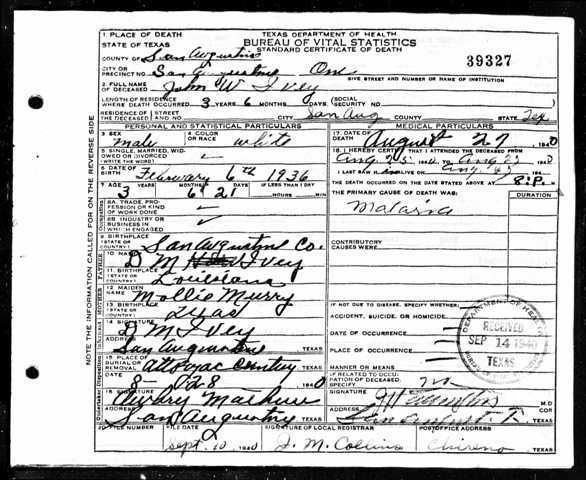 NOTE THE INFORMATION CALLED FOR ON THE REVERSE SIDE
TEXAS DEPARTMENT OF HEALTH
BUREAU OF VITAL STATISTICS
STANDARD CERTIFICATE OF DEATH
39327
1. PLACE OF DEATH
STATE OF TEXAS
COUNTY OF San Augustine
CITY OR PRECINCT NO. San Augustine One
GIVE STREET AND NUMBER OR NAME OF INSTITUTION
2. FULL NAME OF DECEASED John W Ivey
LENGTH OF RESIDENCE WHERE DEATH OCCURRED 3 YEARS 6 MONTHS DAYS (SOCIAL SECURITY NO.
RESIDENCE OF THE DECEASED STREET AND NO. CITY San Aug COUNTY STATE Tex
PERSONAL AND STATISTICAL PARTICULARS
3. SEX male
4. COLOR OR RACE white
5. SINGLE, MARRIED, WIDOWED OR DIVORCED (WRITE THE WORD)
6. DATE OF BIRTH February 6th 1936
7. AGE YEARS 3 MONTHS 6 DAYS 21 IF LESS THAN 1 DAY
8A. TRADE, PROFESSION OR KIND OF WORK DONE
8B. INDUSTRY OR BUSINESS IN WHICH ENGAGED
9. BIRTHPLACE (STATE OR COUNTRY) San Augustine Co.
FATHER
10. NAME D M Ivey
11. BIRTHPLACE (STATE OR COUNTRY) Louisiana
MOTHER
12. MAIDEN NAME Mollie Murry
13. BIRTHPLACE (STATE OR COUNTRY) Texas
14. SIGNATURE D M Ivey
ADDRESS San Augustine TEXAS
15. PLACE OF BURIAL OR REMOVAL TEXAS
8 - 28 1940
16. SIGNATURE
ADDRESS San Augustine TEXAS
MEDICAL PARTICULARS
17. DATE OF DEATH August 27, 1940
18. I HEREBY CERTIFY THAT I ATTENDED THE DECEASED FROM
Aug 25 1940 TO Aug 27 1940
I LAST SAW H ALIVE ON Aug 27 194
THE DEATH OCCURRED ON THE DATE STATED ABOVE AT 8:P. M.
THE PRIMARY CAUSE OF DEATH WAS: DURATION
Malaria
CONTRIBUTORY CAUSES WERE:
IF NOT DUE TO DISEASE, SPECIFY WHETHER:
ACCIDENT, SUICIDE, OR HOMICIDE
DATE OF OCCURRENCE
PLACE OF OCCURRENCE
MANNER OR MEANS
IF RELATED TO OCCUPATION OF DECEASED, SPECIFY
SIGNATURE M.D.
ADDRESS TEXAS
RECEIVED
SEP 14 1940
TEXAS
FILE NUMBER
FILE DATE Sept. 10 1940
SIGNATURE OF LOCAL REGISTRAR J. M. Collins
POSTOFFICE ADDRESS Chireno, TEXAS